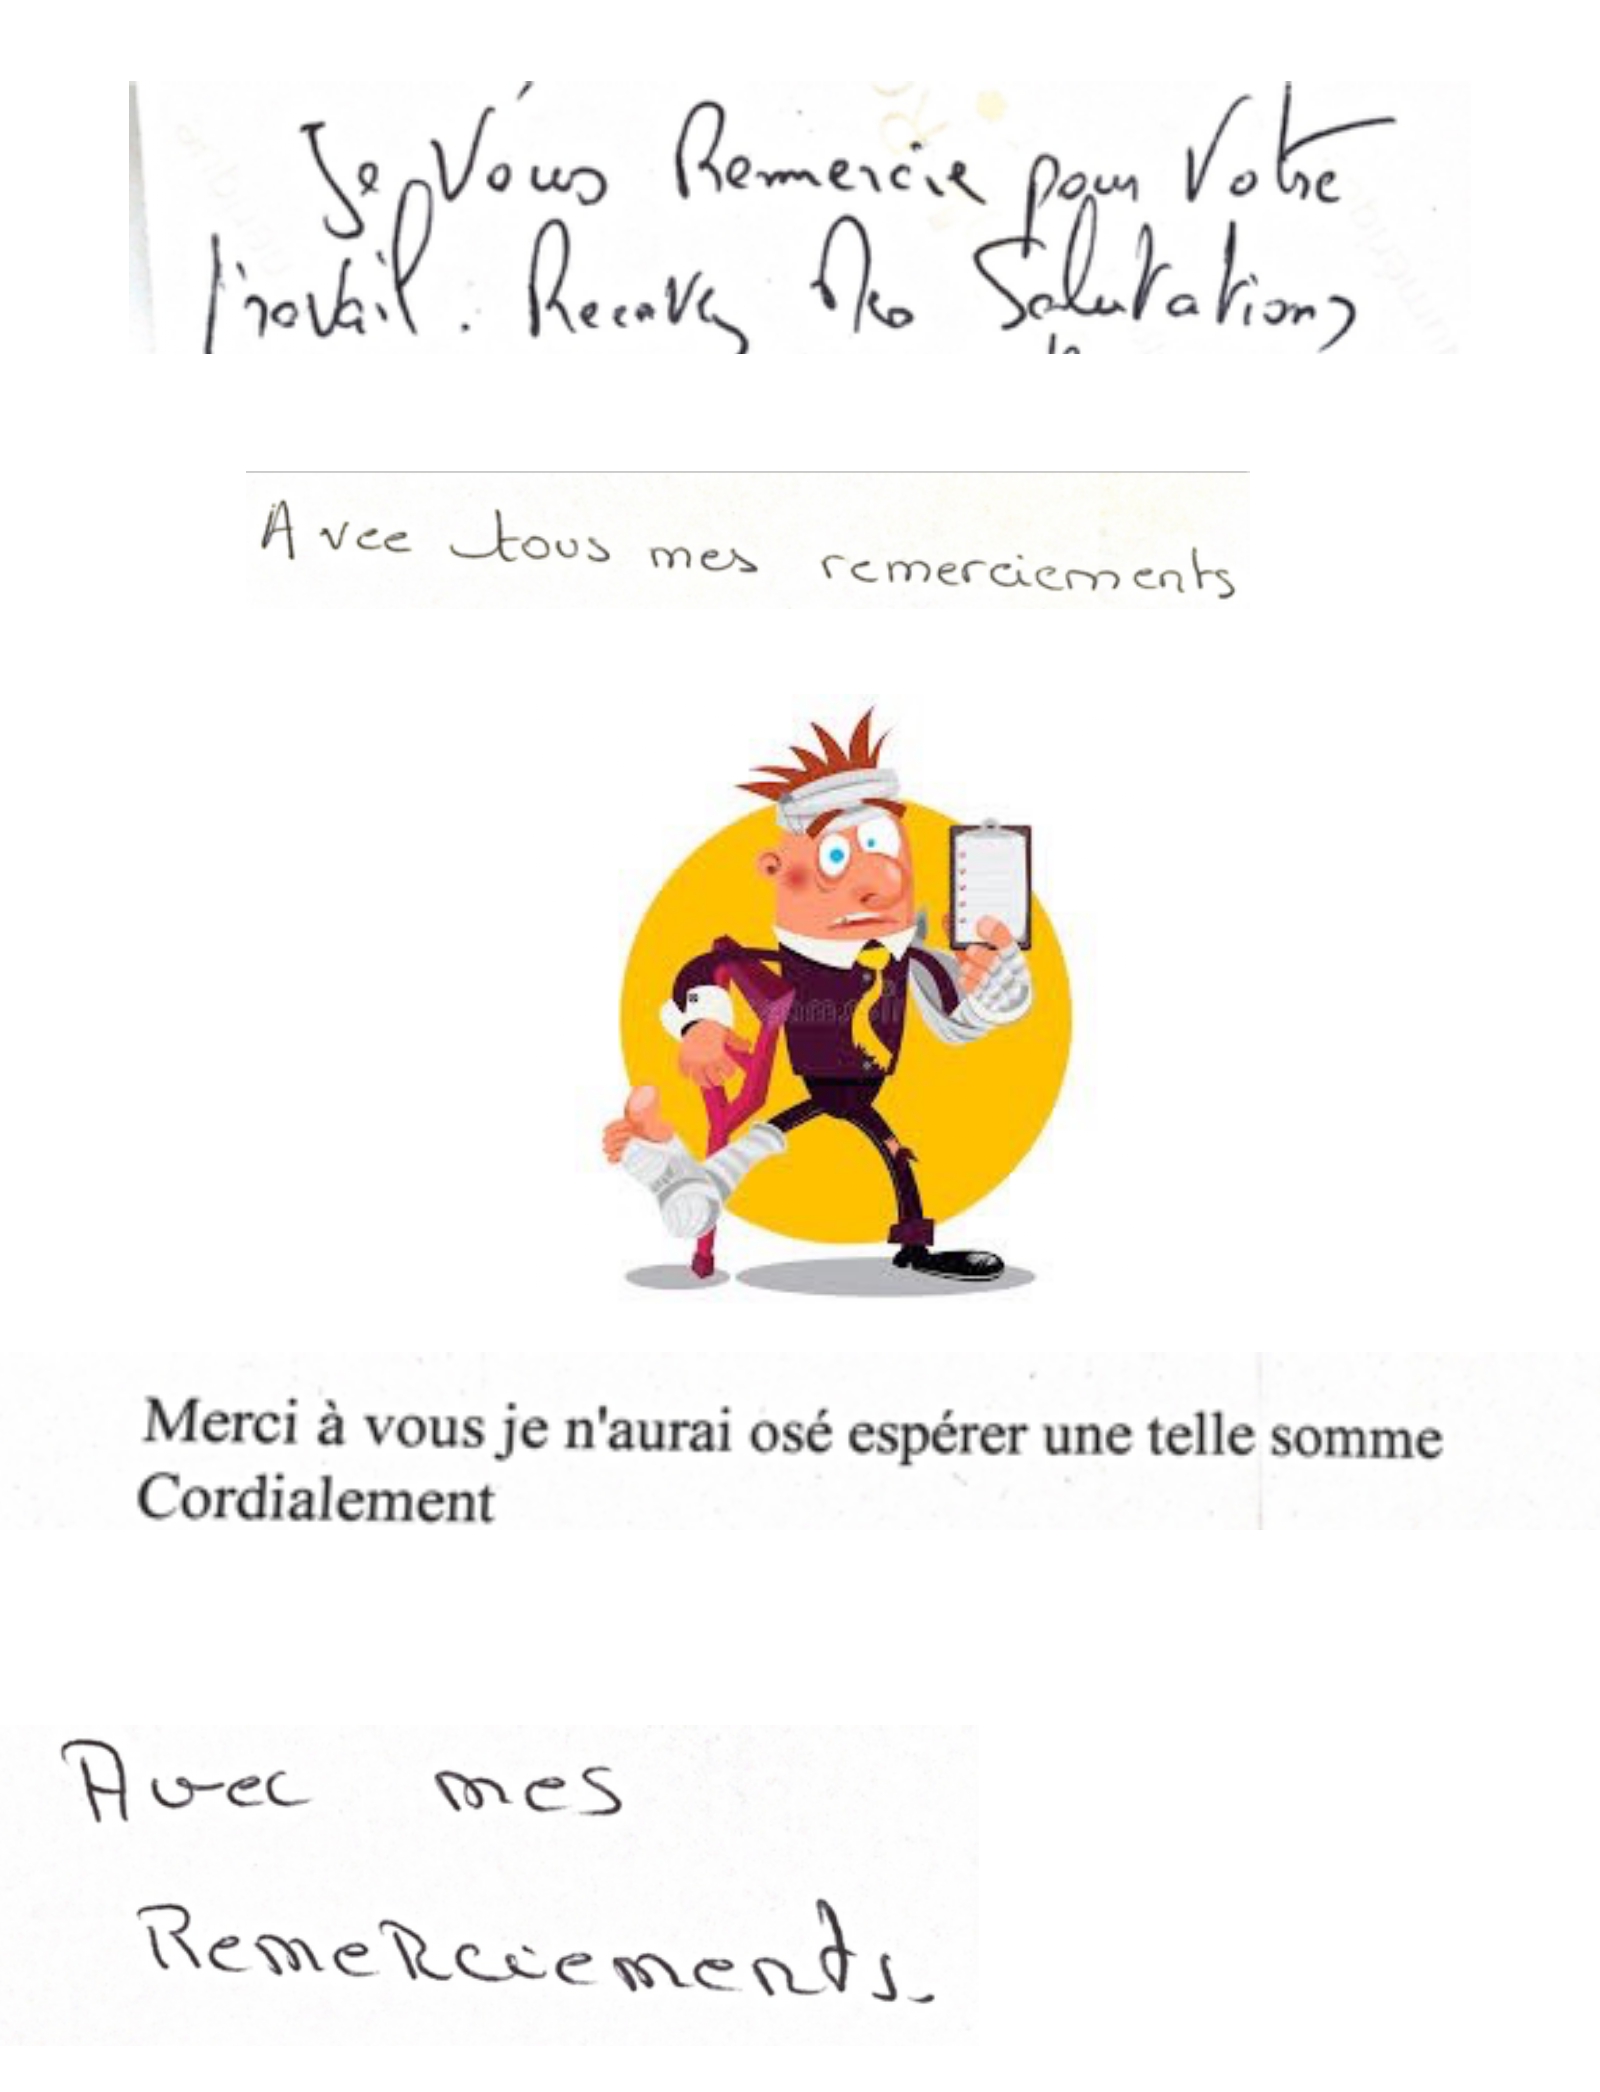 Je Vous Remercie pour Votre
Travail. Recevez Mes Salutations
Avec tous mes remerciements
Merci à vous je n'aurai osé espérer une telle somme
Cordialement
Avec mes
Remerciements.